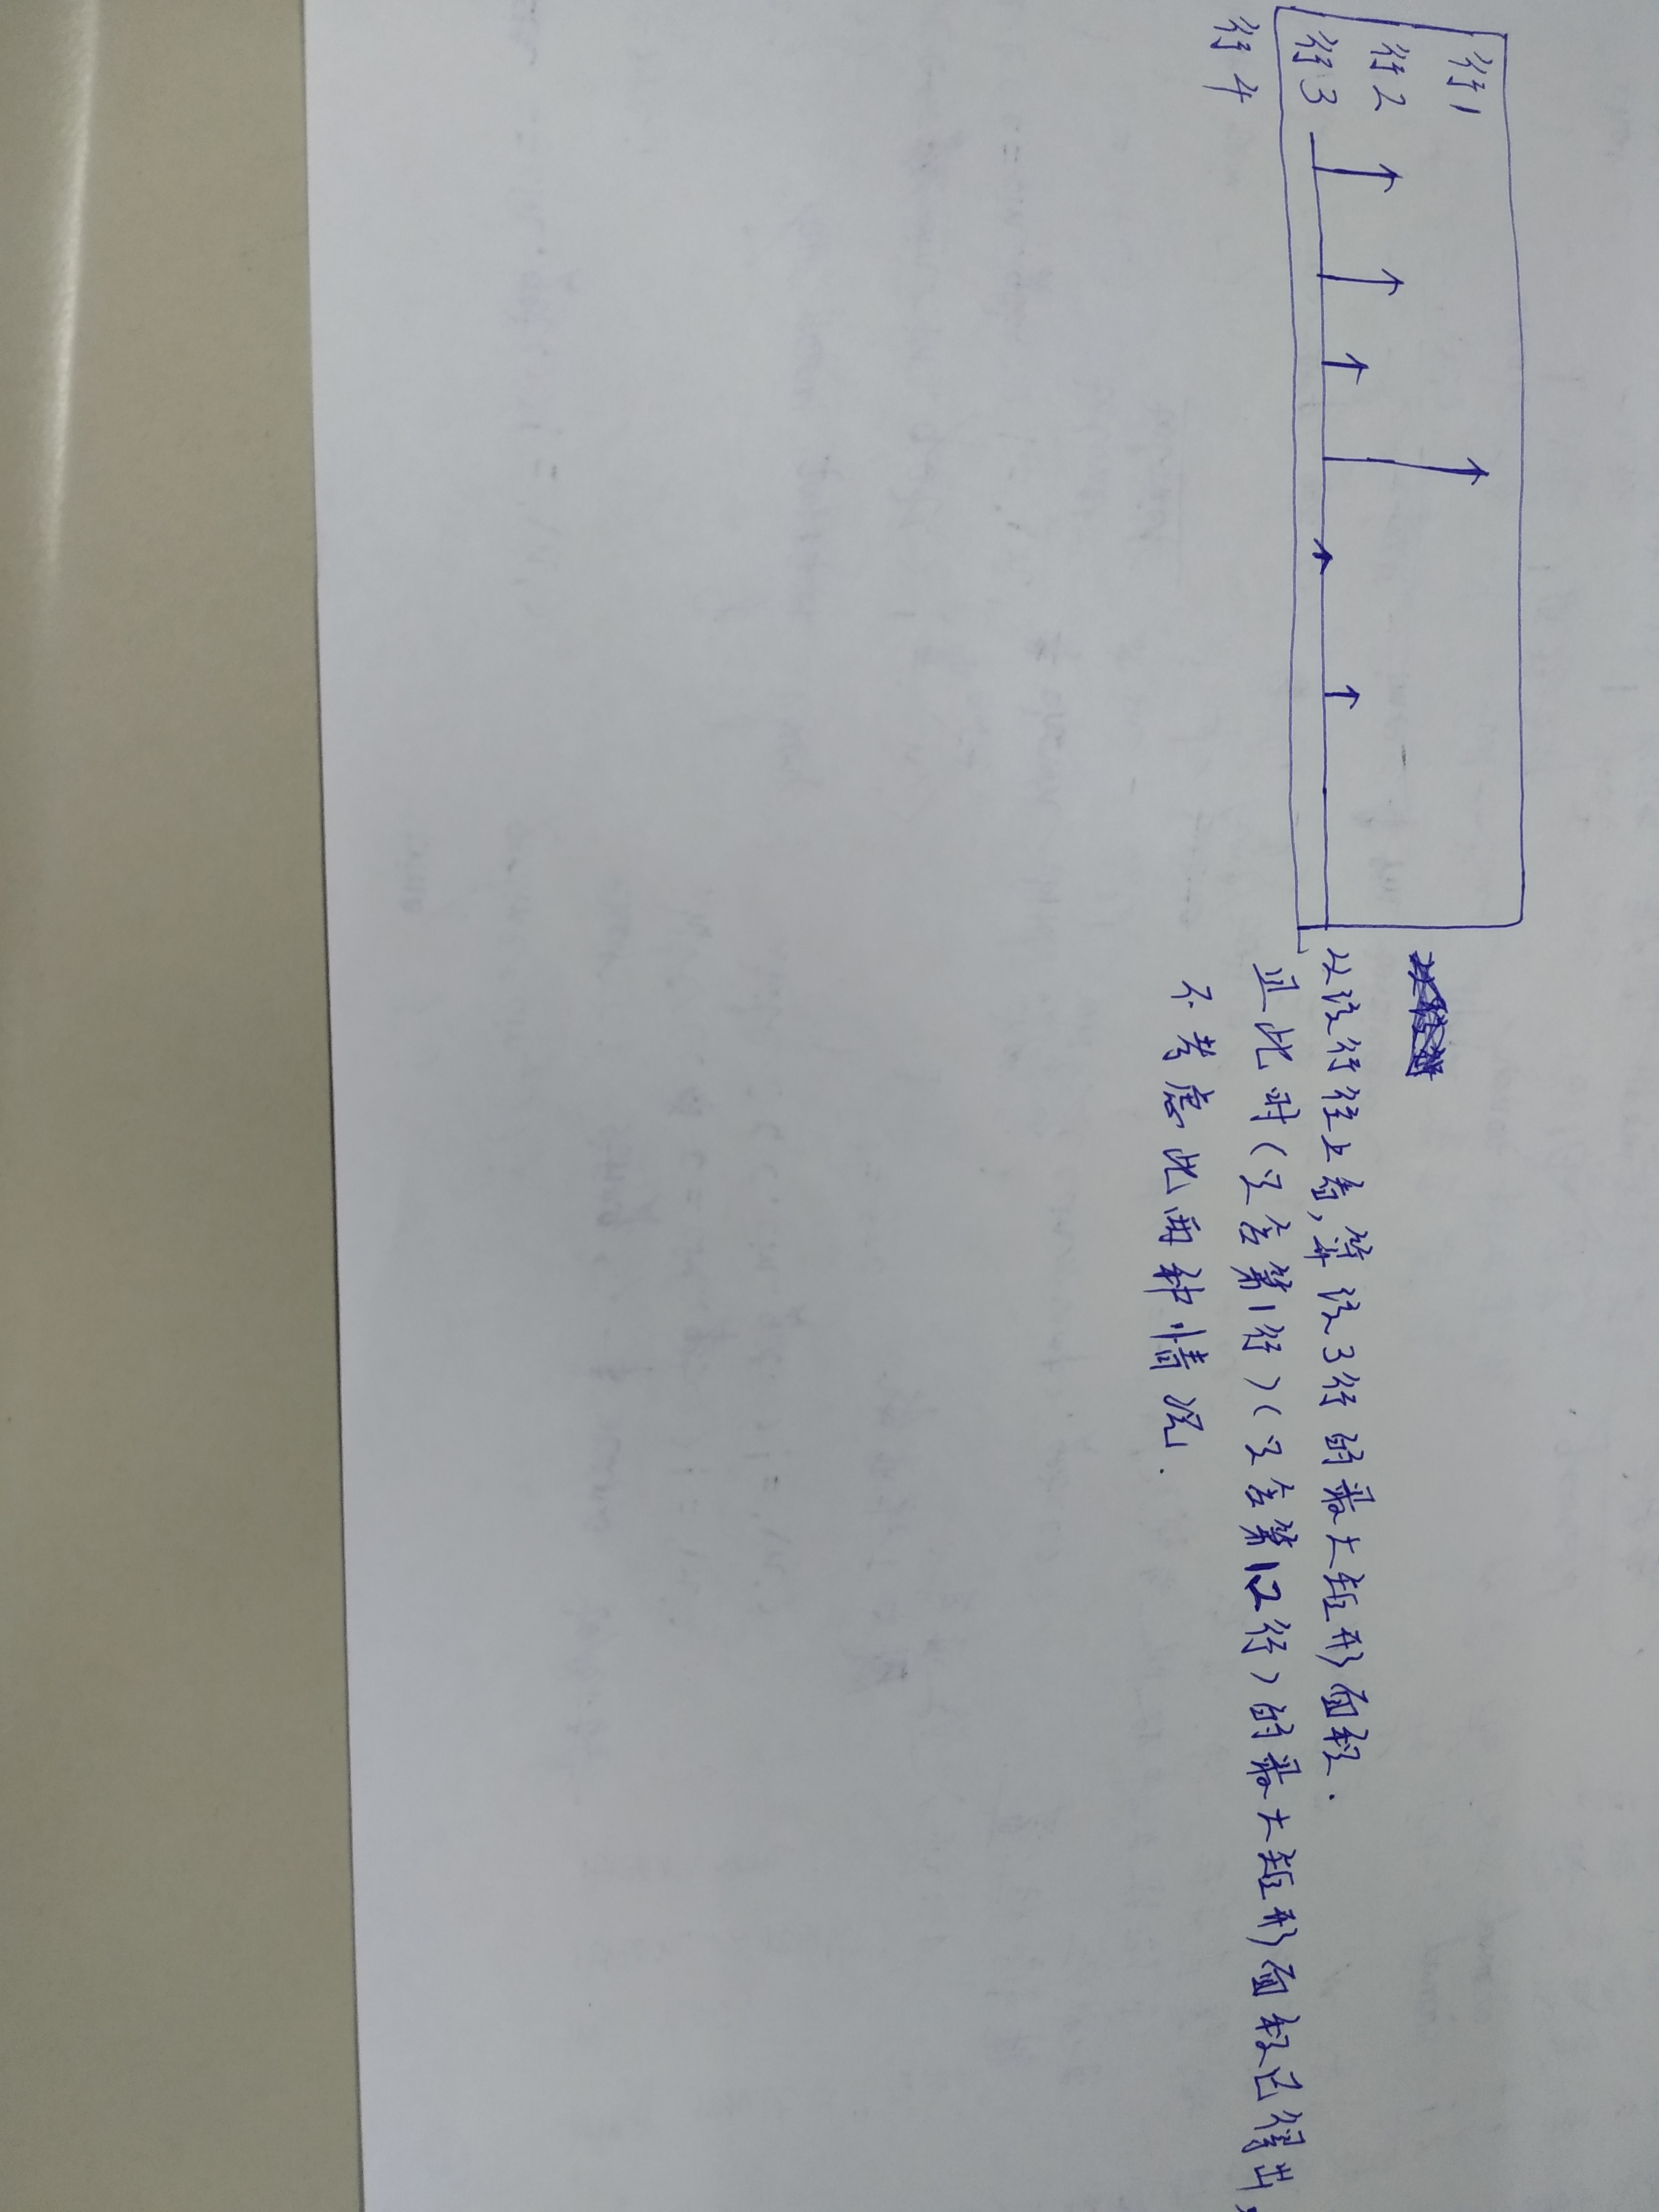 行1
行2
行3
行4
从该行往上看，算该3行的最大矩形面积．
且此时（只含第1行）（只含第12行）的最大矩形面积已得出，
不考虑此两种情况．